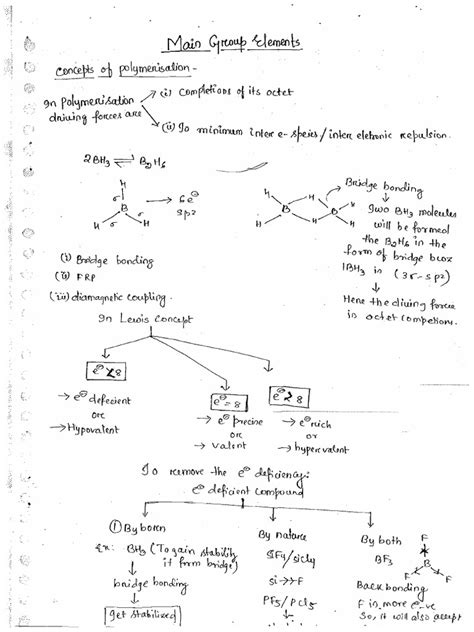 Main Group Elements
concepts of polymerisation -
In Polymerisation driving forces are
(i) completions of its octet
(ii) To minimum inter e- speies/inter eletronic repulsion.
2BH3 ⇌ B2H6
H
σ
B
σ
H
H
→ 6e⊖
sp2
H
H
B
H
B
H
H
H
Bridge bonding
Two BH3 molecules
will be formed
the B2H6 in the
form of bridge
BH3 is (3σ-sp2)
Hence the diving force
is octet competion.
(i) Bridge bonding
(ii) FRP
(iii) diamagnetic coupling.
In Lewis concept
e⊖<8
e⊖=8
e⊖>8
→ e⊖ defecient
or
→ Hypovalent
→ e⊖ precine
or
→ valent
→ e⊖ rich
or
→ hypervalent
To remove the e⊖ deficiency:
e⊖ deficient compound
① By boron
Ex: BH3 (To gain stability
it form bridge)
bridge bonding
get stabilized
By nature
SF4/sicl4
si→→F
PF5/PCl5
By both
BF3
F
B
F
F
Back bonding
F is more e-ve
So, it will also accept